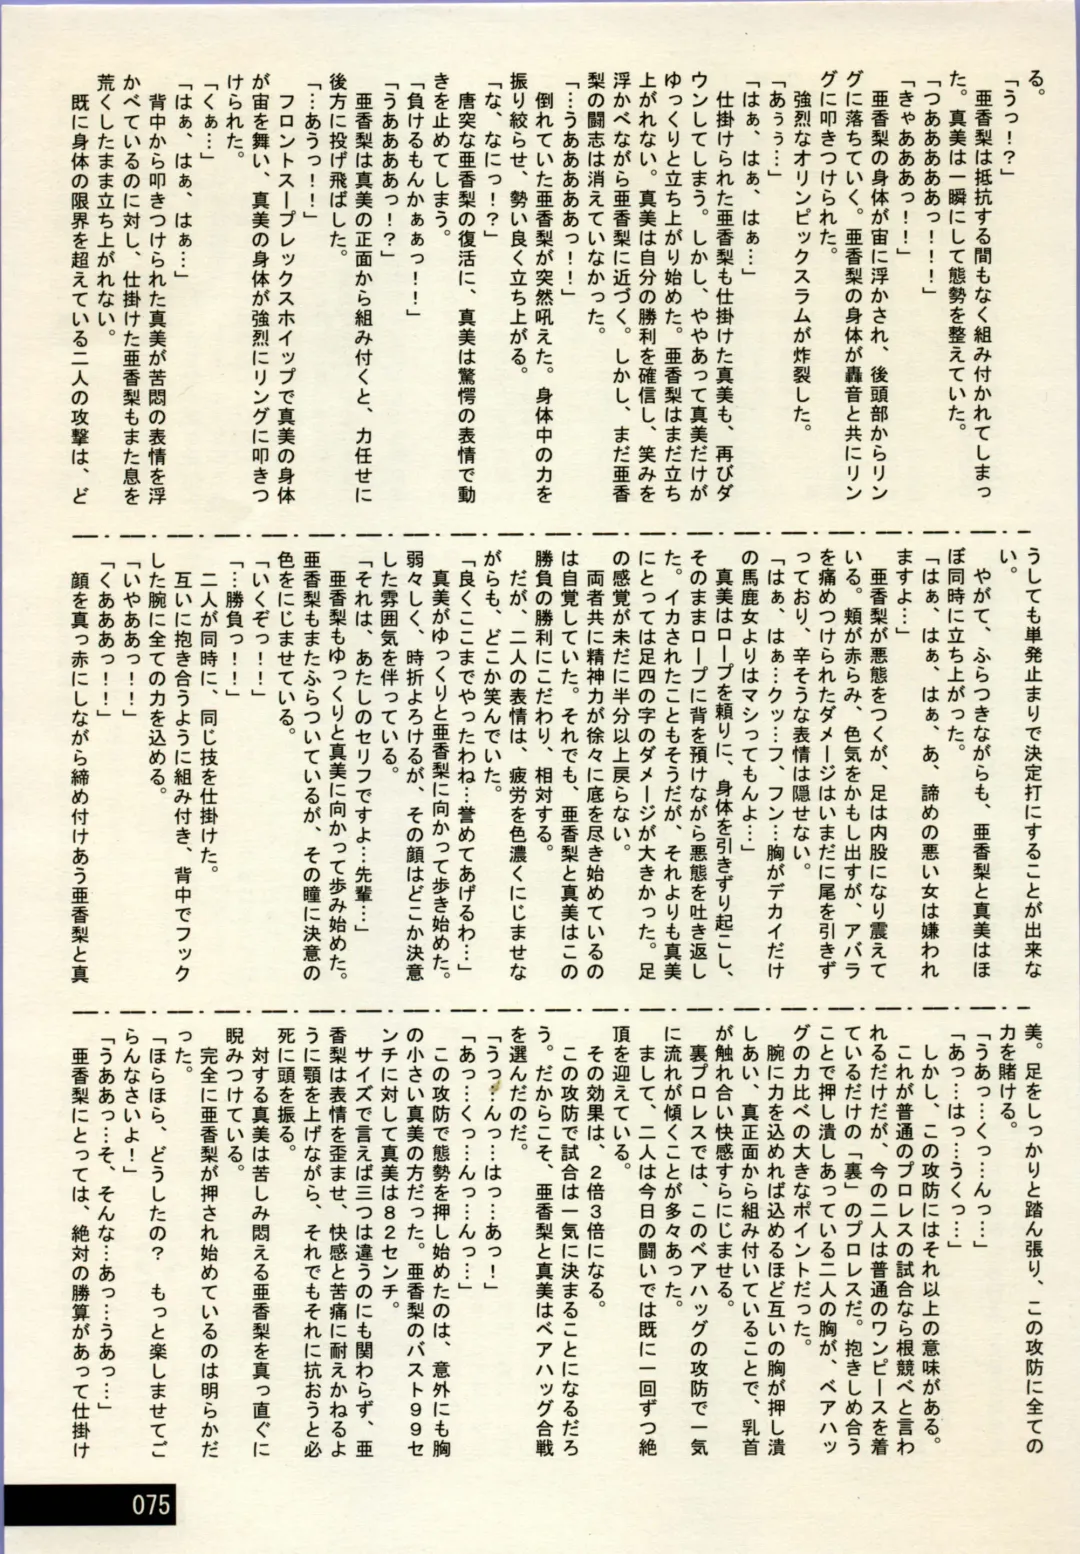 る。
「うっ！？」
　亜香梨は抵抗する間もなく組み付かれてしまっ
た。真美は一瞬にして態勢を整えていた。
「つああああっ！！！」
「きゃあああっ！！」
　亜香梨の身体が宙に浮かされ、後頭部からリン
グに落ちていく。亜香梨の身体が轟音と共にリン
グに叩きつけられた。
　強烈なオリンピックスラムが炸裂した。
「あぅぅ…」
「はぁ、はぁ、はぁ…」
　仕掛けられた亜香梨も仕掛けた真美も、再びダ
ウンしてしまう。しかし、ややあって真美だけが
ゆっくりと立ち上がり始めた。亜香梨はまだ立ち
上がれない。真美は自分の勝利を確信し、笑みを
浮かべながら亜香梨に近づく。しかし、まだ亜香
梨の闘志は消えていなかった。
「…うああああああっ！！」
　倒れていた亜香梨が突然吼えた。身体中の力を
振り絞らせ、勢い良く立ち上がる。
「な、なにっ！？」
　唐突な亜香梨の復活に、真美は驚愕の表情で動
きを止めてしまう。
「負けるもんかぁぁっ！！」
「うああああっ！？」
　亜香梨は真美の正面から組み付くと、力任せに
後方に投げ飛ばした。
「…あうっ！！」
　フロントスープレックスホイップで真美の身体
が宙を舞い、真美の身体が強烈にリングに叩きつ
けられた。
「くぁ…」
「はぁ、はぁ、はぁ…」
　背中から叩きつけられた真美が苦悶の表情を浮
かべているのに対し、仕掛けた亜香梨もまた息を
荒くしたまま立ち上がれない。
　既に身体の限界を超えている二人の攻撃は、ど
うしても単発止まりで決定打にすることが出来な
い。
　やがて、ふらつきながらも、亜香梨と真美はほ
ぼ同時に立ち上がった。
「はぁ、はぁ、はぁ、あ、諦めの悪い女は嫌われ
ますよ…」
　亜香梨が悪態をつくが、足は内股になり震えて
いる。頬が赤らみ、色気をかもし出すが、アバラ
を痛めつけられたダメージはいまだに尾を引きず
っており、辛そうな表情は隠せない。
「はぁ、はぁ…クッ…フ、フン…胸がデカイだけ
の馬鹿女よりはマシってもんよ…」
　真美はロープを頼りに、身体を引きずり起こし、
そのままロープに背を預けながら悪態を吐き返し
た。イカされたこともそうだが、それよりも真美
にとっては足四の字のダメージが大きかった。足
の感覚が未だに半分以上戻らない。
　両者共に精神力が徐々に底を尽き始めているの
は自覚していた。それでも、亜香梨と真美はこの
勝負の勝利にこだわり、相対する。
　だが、二人の表情は、疲労を色濃くにじませな
がらも、どこか笑んでいた。
「良くここまでやったわね…誉めてあげるわ…」
　真美がゆっくりと亜香梨に向かって歩き始めた。
弱々しく、時折よろけるが、その顔はどこか決意
した雰囲気を伴っている。
「それは、あたしのセリフですよ…先輩…」
　亜香梨もゆっくりと真美に向かって歩み始めた。
亜香梨もまたふらついているが、その瞳に決意の
色をにじませている。
「いくぞっ！！」
「…勝負っ！！」
　二人が同時に、同じ技を仕掛けた。
　互いに抱き合うように組み付き、背中でフック
した腕に全ての力を込める。
「いやああっ！！」
「くああああっ！！」
　顔を真っ赤にしながら締め付けあう亜香梨と真
美。足をしっかりと踏ん張り、この攻防に全ての
力を賭ける。
「うあっ…くっ…んっ…」
「あっ…はっ…うくっ…」
　しかし、この攻防にはそれ以上の意味がある。
　これが普通のプロレスの試合なら根競べと言わ
れるだけだが、今の二人は普通のワンピースを着
ているだけの「裏」のプロレスだ。抱きしめ合う
ことで押し潰しあっている二人の胸が、ベアハッ
グの力比べの大きなポイントだった。
　腕に力を込めれば込めるほど互いの胸が押し潰
しあい、真正面から組み付いていることで、乳首
が触れ合い快感すらにじませる。
　裏プロレスでは、このベアハッグの攻防で一気
に流れが傾くことが多々あった。
　まして、二人は今日の闘いでは既に一回ずつ絶
頂を迎えている。
　その効果は、２倍３倍になる。
　この攻防で試合は一気に決まることになるだろ
う。だからこそ、亜香梨と真美はベアハッグ合戦
を選んだのだ。
「うっ…んっ…はっ…あっ！」
「あっ…くっ…んっ…んっ…」
　この攻防で態勢を押し始めたのは、意外にも胸
の小さい真美の方だった。亜香梨のバスト９９セ
ンチに対して真美は８２センチ。
　サイズで言えば三つは違うのにも関わらず、亜
香梨は表情を歪ませ、快感と苦痛に耐えかねるよ
うに顎を上げながら、それでもそれに抗おうと必
死に頭を振る。
　対する真美は苦しみ悶える亜香梨を真っ直ぐに
睨みつけている。
　完全に亜香梨が押され始めているのは明らかだ
った。
「ほらほら、どうしたの？　もっと楽しませてご
らんなさいよ！」
「うああっ…そ、そんな…あっ…うあっ…」
　亜香梨にとっては、絶対の勝算があって仕掛け
075